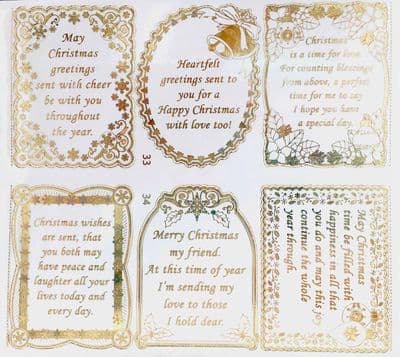 May
Christmas
greetings
sent with cheer
be with you
throughout
the year.
Heartfelt
greetings sent to
you for a
Happy Christmas
with love too!
Christmas
is a time for love
For counting blessings
from above, a perfect
time for me to say
I hope you have
a special day.
33
34
Christmas wishes
are sent, that
you both may
have peace and
laughter all your
lives today and
every day.
Merry Christmas
my friend.
At this time of year
I'm sending my
love to those
I hold dear.
May Christmas
time be filled with
happiness in all that
you do and may this joy
continue the whole
year through.